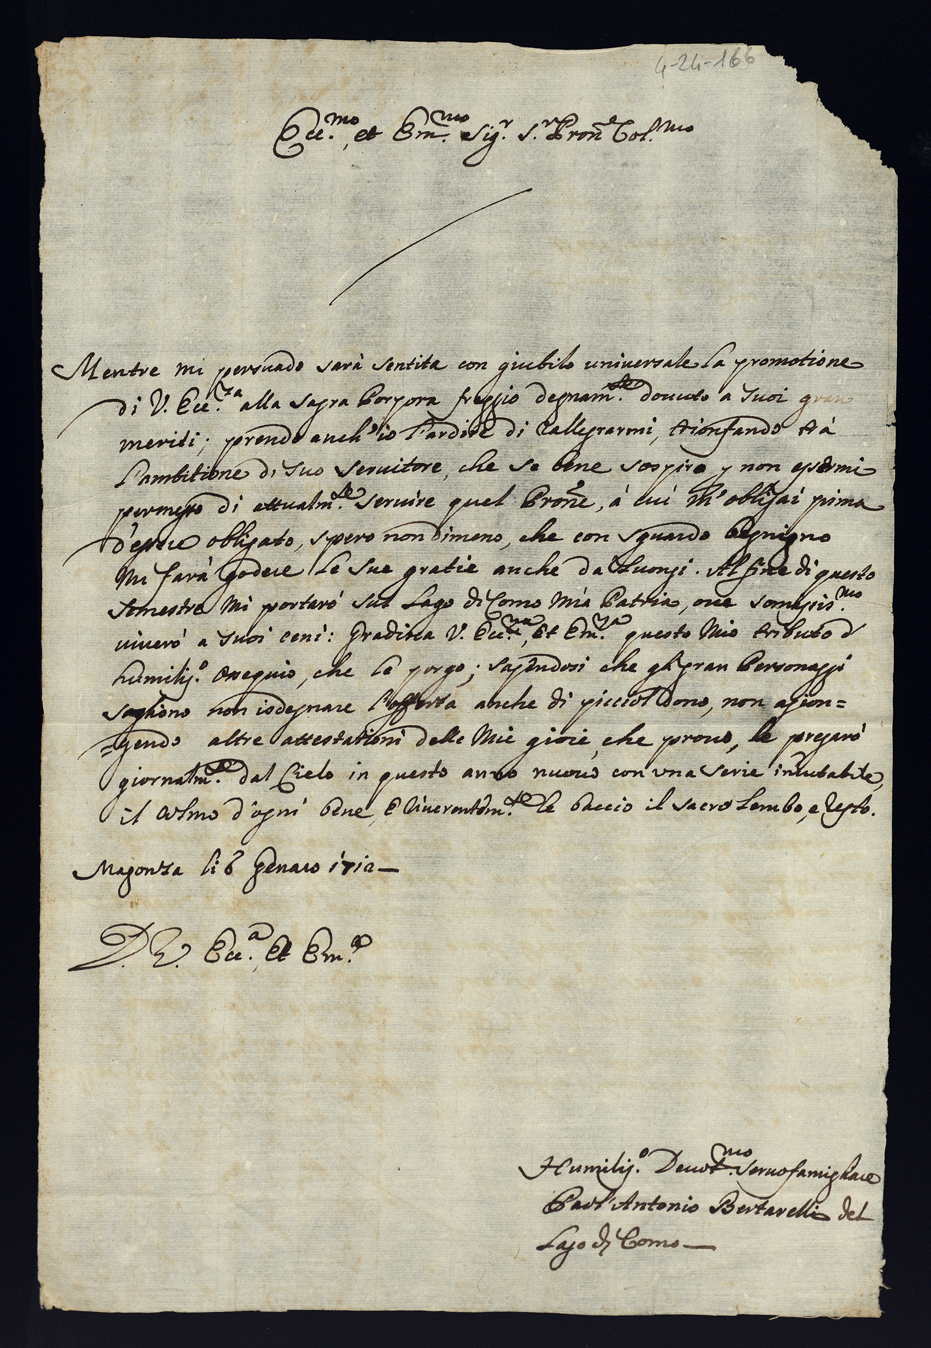 4-24-166
Ecc.mo et Em.mo Sig.r S.r Pron.e Col.mo
Mentre mi persuado sarà sentita con giubilo universale la promotione
di V. Ecc.za alla sagra Porpora freggio degnam.te dovuto a suoi gran
meriti; prendo anch'io l'ardire di rallegrarmi, trionfando trà
l'ambitione di suo servitore, che se bene sospiro p non essermi
permesso di attualm.te servire quel Pron.e, à cui m'obligai prima
d'essere obligato, spero nondimeno, che con sguardo begnigno
mi farà godere le sue gratie anche da luongi. Al fine di questo
semestre mi portarò sul Lago di Como mia Patria, ove somessis.mo
viverò a suoi ceni: gradisca V. Ecc.za, et Em.za questo mio tributo d
humiliss.o ossequio, che le porgo; sapendosi che gli gran Personaggi
sogliono non isdegnare l'offerta anche di picciol dono, non agion=
=gendo altre attestationi delle mie gioie, che provo, le pregarò
giornalm.te dal Cielo in questo anno nuovo con una serie
il colmo d'ogni bene, e riverentem.te le baccio il sacro lembo, e resto.
Magonza li 6 Genaro 1712
D. V. Ecc.a, et Em.a
Humiliss.o Devot.mo Servo famigliare
Paol' Antonio Bertarelli del
Lago di Como